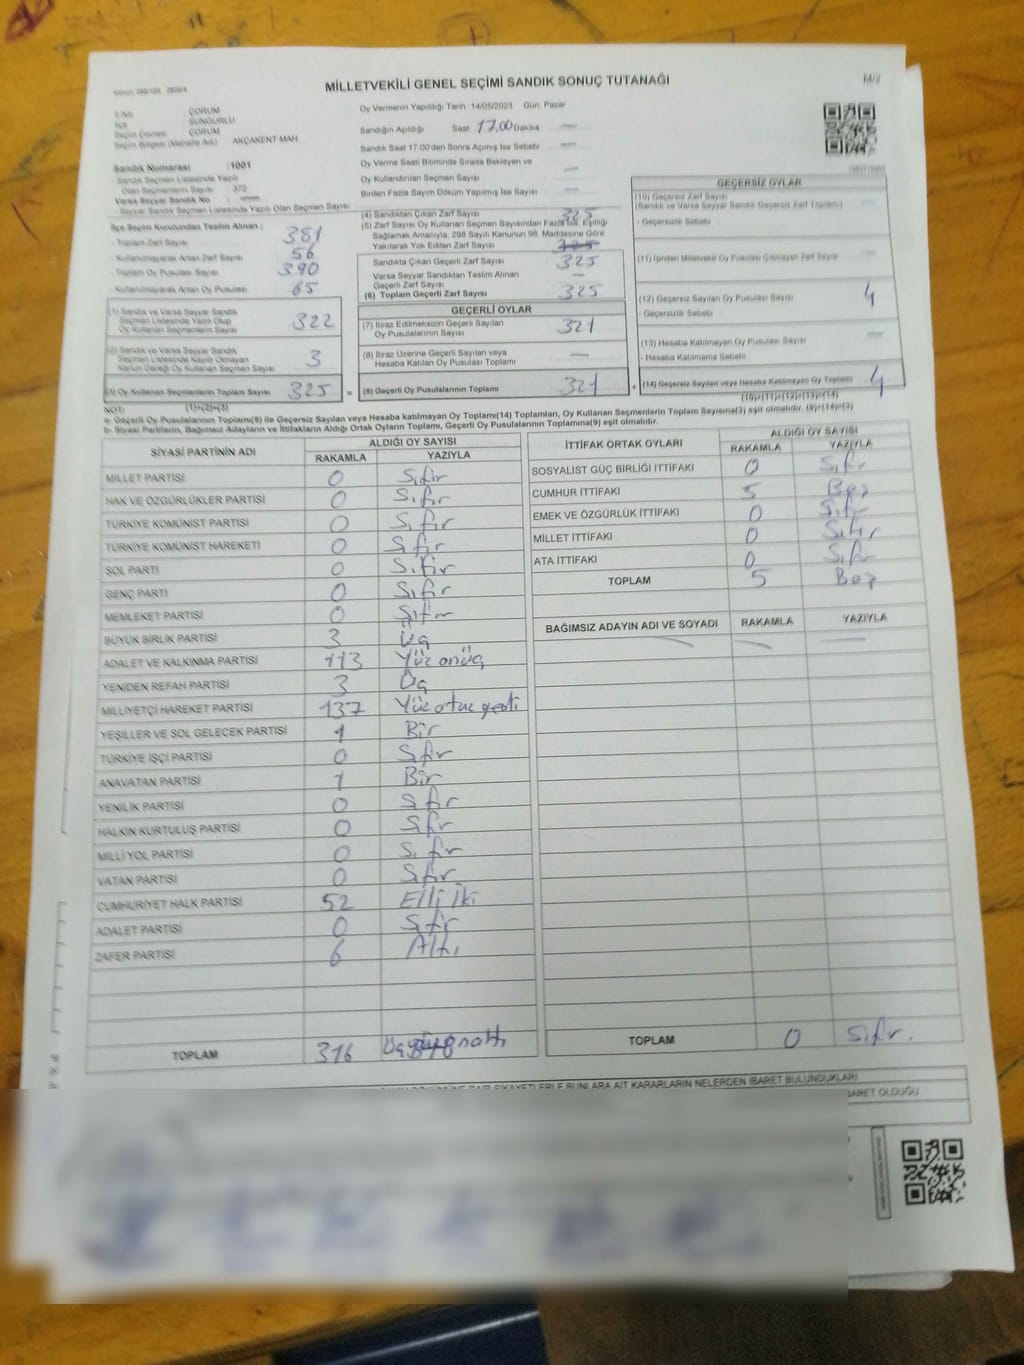 MİLLETVEKİLİ GENEL SEÇİMİ SANDIK SONUÇ TUTANAĞI
İl Adı ÇORUM
İlçe SUNGURLU
Seçim Çevresi ÇORUM
Seçim Bölgesi (Mahalle Adı) AKÇAKENT MAH
Sandık Numarası :1001
- Sandık Seçmen Listesinde Yazılı
Olan Seçmenlerin Sayısı : 372
Varsa Seyyar Sandık No : —
- Seyyar Sandık Seçmen Listesinde Yazılı Olan Seçmen Sayısı
İlçe Seçim Kurulundan Teslim Alınan ;
- Toplam Zarf Sayısı 381
- Kullanılmayarak Artan Zarf Sayısı 56
- Toplam Oy Pusulası Sayısı 390
- Kullanılmayarak Artan Oy Pusulası 65
(1) Sandık ve Varsa Seyyar Sandık
Seçmen Listesinde Yazılı Olup
Oy Kullanan Seçmenlerin Sayısı 322
(2) Sandık ve Varsa Seyyar Sandık
Seçmen Listesinde Kayıtlı Olmayan
Kanun Gereği Oy Kullanan Seçmen Sayısı 3
(3) Oy Kullanan Seçmenlerin Toplam Sayısı 325 =
(1)+(2)=(3)
Oy Vermenin Yapıldığı Tarih 14/05/2023 Gün: Pazar
Sandığın Açıldığı Saat: 17.00 Dakika —
Sandık Saat 17:00'den Sonra Açılmış İse Sebebi —
Oy Verme Saati Bitiminde Sırada Bekleyen ve
Oy Kullandırılan Seçmen Sayısı —
Birden Fazla Sayım Döküm Yapılmış İse Sayısı —
(4) Sandıktan Çıkan Zarf Sayısı 325
(5) Zarf Sayısı Oy Kullanan Seçmen Sayısından Fazla İse, Eşitliği
Sağlamak Amacıyla, 298 Sayılı Kanunun 98. Maddesine Göre
Yakılarak Yok Edilen Zarf Sayısı
Sandıkta Çıkan Geçerli Zarf Sayısı 325
Varsa Seyyar Sandıktan Teslim Alınan
Geçerli Zarf Sayısı —
(6) Toplam Geçerli Zarf Sayısı 325
GEÇERLİ OYLAR
(7) İtiraz Edilmeksizin Geçerli Sayılan
Oy Pusulalarının Sayısı 321
(8) İtiraz Üzerine Geçerli Sayılan veya
Hesaba Katılan Oy Pusulası Toplamı —
(9) Geçerli Oy Pusulalarının Toplamı 321 +
M/2
GEÇERSİZ OYLAR
(10) Geçersiz Zarf Sayısı
(Sandık ve Varsa Seyyar Sandık Geçersiz Zarf Toplamı)
- Geçersizlik Sebebi
(11) İçinden Milletvekili Oy Pusulası Çıkmayan Zarf Sayısı
(12) Geçersiz Sayılan Oy Pusulası Sayısı 4
- Geçersizlik Sebebi
(13) Hesaba Katılmayan Oy Pusulası Sayısı
- Hesaba Katılmama Sebebi
(14) Geçersiz Sayılan veya Hesaba Katılmayan Oy Toplamı 4
(10)+(11)+(12)+(13)=(14)
NOT:
a- Geçerli Oy Pusulalarının Toplamı(9) ile Geçersiz Sayılan veya Hesaba katılmayan Oy Toplamı(14) Toplamları, Oy Kullanan Seçmenlerin Toplam Sayısına(3) eşit olmalıdır. (9)+(14)=(3)
b- Siyasi Partilerin, Bağımsız Adayların ve İttifakların Aldığı Ortak Oyların Toplamı, Geçerli Oy Pusulalarının Toplamına(9) eşit olmalıdır.
SİYASİ PARTİNİN ADI ALDIĞI OY SAYISI
RAKAMLA YAZIYLA
MİLLET PARTİSİ 0 Sıfır
HAK VE ÖZGÜRLÜKLER PARTİSİ 0 Sıfır
TÜRKİYE KOMÜNİST PARTİSİ 0 Sıfır
TÜRKİYE KOMÜNİST HAREKETİ 0 Sıfır
SOL PARTİ 0 Sıfır
GENÇ PARTİ 0 Sıfır
MEMLEKET PARTİSİ 0 Sıfır
BÜYÜK BİRLİK PARTİSİ 3 Üç
ADALET VE KALKINMA PARTİSİ 113 Yüz onüç
YENİDEN REFAH PARTİSİ 3 Üç
MİLLİYETÇİ HAREKET PARTİSİ 137 Yüz otuz yedi
YEŞİLLER VE SOL GELECEK PARTİSİ 1 Bir
TÜRKİYE İŞÇİ PARTİSİ 0 Sıfır
ANAVATAN PARTİSİ 1 Bir
YENİLİK PARTİSİ 0 Sıfır
HALKIN KURTULUŞ PARTİSİ 0 Sıfır
MİLLİ YOL PARTİSİ 0 Sıfır
VATAN PARTİSİ 0 Sıfır
CUMHURİYET HALK PARTİSİ 52 Elli iki
ADALET PARTİSİ 0 Sıfır
ZAFER PARTİSİ 6 Altı
TOPLAM 316
İTTİFAK ORTAK OYLARI ALDIĞI OY SAYISI
RAKAMLA YAZIYLA
SOSYALİST GÜÇ BİRLİĞİ İTTİFAKI 0 Sıfır
CUMHUR İTTİFAKI 5 Beş
EMEK VE ÖZGÜRLÜK İTTİFAKI 0 Sıfır
MİLLET İTTİFAKI 0 Sıfır
ATA İTTİFAKI 0 Sıfır
TOPLAM 5 Beş
BAĞIMSIZ ADAYIN ADI VE SOYADI RAKAMLA YAZIYLA
TOPLAM 0 Sıfır.
ŞİKAYETLERLE BUNLARA AİT KARARLARIN NELERDEN İBARET BULUNDUKLARI
İBARET OLDUĞU